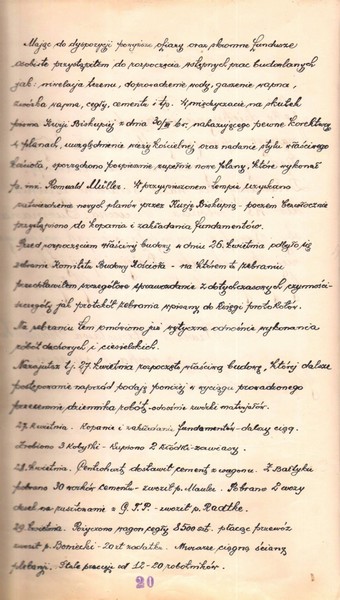 Mając do dyspozycji powyższe ofiary oraz skromne fundusze
osobiste przystąpiłem do rozpoczęcia wstępnych prac budowlanych
jak: niwelacja terenu, doprowadzenie wody, gaszenie wapna,
zwózka wapna, cegły, cementu i t.p. W międzyczasie, na skutek
pisma Kurji Biskupiej z dnia 30/III br. nakazującego pewne korektury
w planach, uwzględnienie wieży kościelnej oraz nadanie stylu właściwego
kościoła, sporządzono pośpiesznie zupełnie nowe plany, które wykonał
p. inż. Romuald Müller. W przyspieszonem tempie uzyskano
zatwierdzenie nowych planów przez Kurję Biskupią - poczem bezzwłocznie
przystąpiono do kopania i zakładania fundamentów.
Przed rozpoczęciem właściwej budowy w dniu 26. kwietnia odbyło się
zebranie Komitetu Budowy Kościoła - na którem to zebraniu
przedstawiłem szczegółowe sprawozdanie z dotychczasowych czynności -
szczegóły jak protokół zebrania wpisany do księgi protokółów.
Na zebraniu tem omówiono już wytyczne odnośnie wykonania
robót dachowych i ciesielskich.
Nazajutrz tj. 27. kwietnia rozpoczęto właściwą budowę, której dalsze
postępowanie naprzód podaję poniżej w wyciągu prowadzonego
przezemnie dziennika robót - odnośnie zwózki materjałów.
27. kwietnia - Kopanie i zakładanie fundamentów - dalszy ciąg.
Zrobiono 3 kobyłki - Kupiono 2 kłódki - zawiasy.
28. kwietnia. dostawił cement z wagonu. Z Bałtyku
pobrano 30 worków cementu - zwoził p. Maulec. Pobrano 2 wozy
desek na rusztowanie z G.T.P. - zwoził p. Radtke.
29. kwietnia. Pożyczono wagon cegły 8500 szt. płacąc przewóz
zwoził p. Bomecki - 20 zł zadatku. Murarze ciągną ściany
plebanji. Stale pracuje od 12-20 robotników.
20